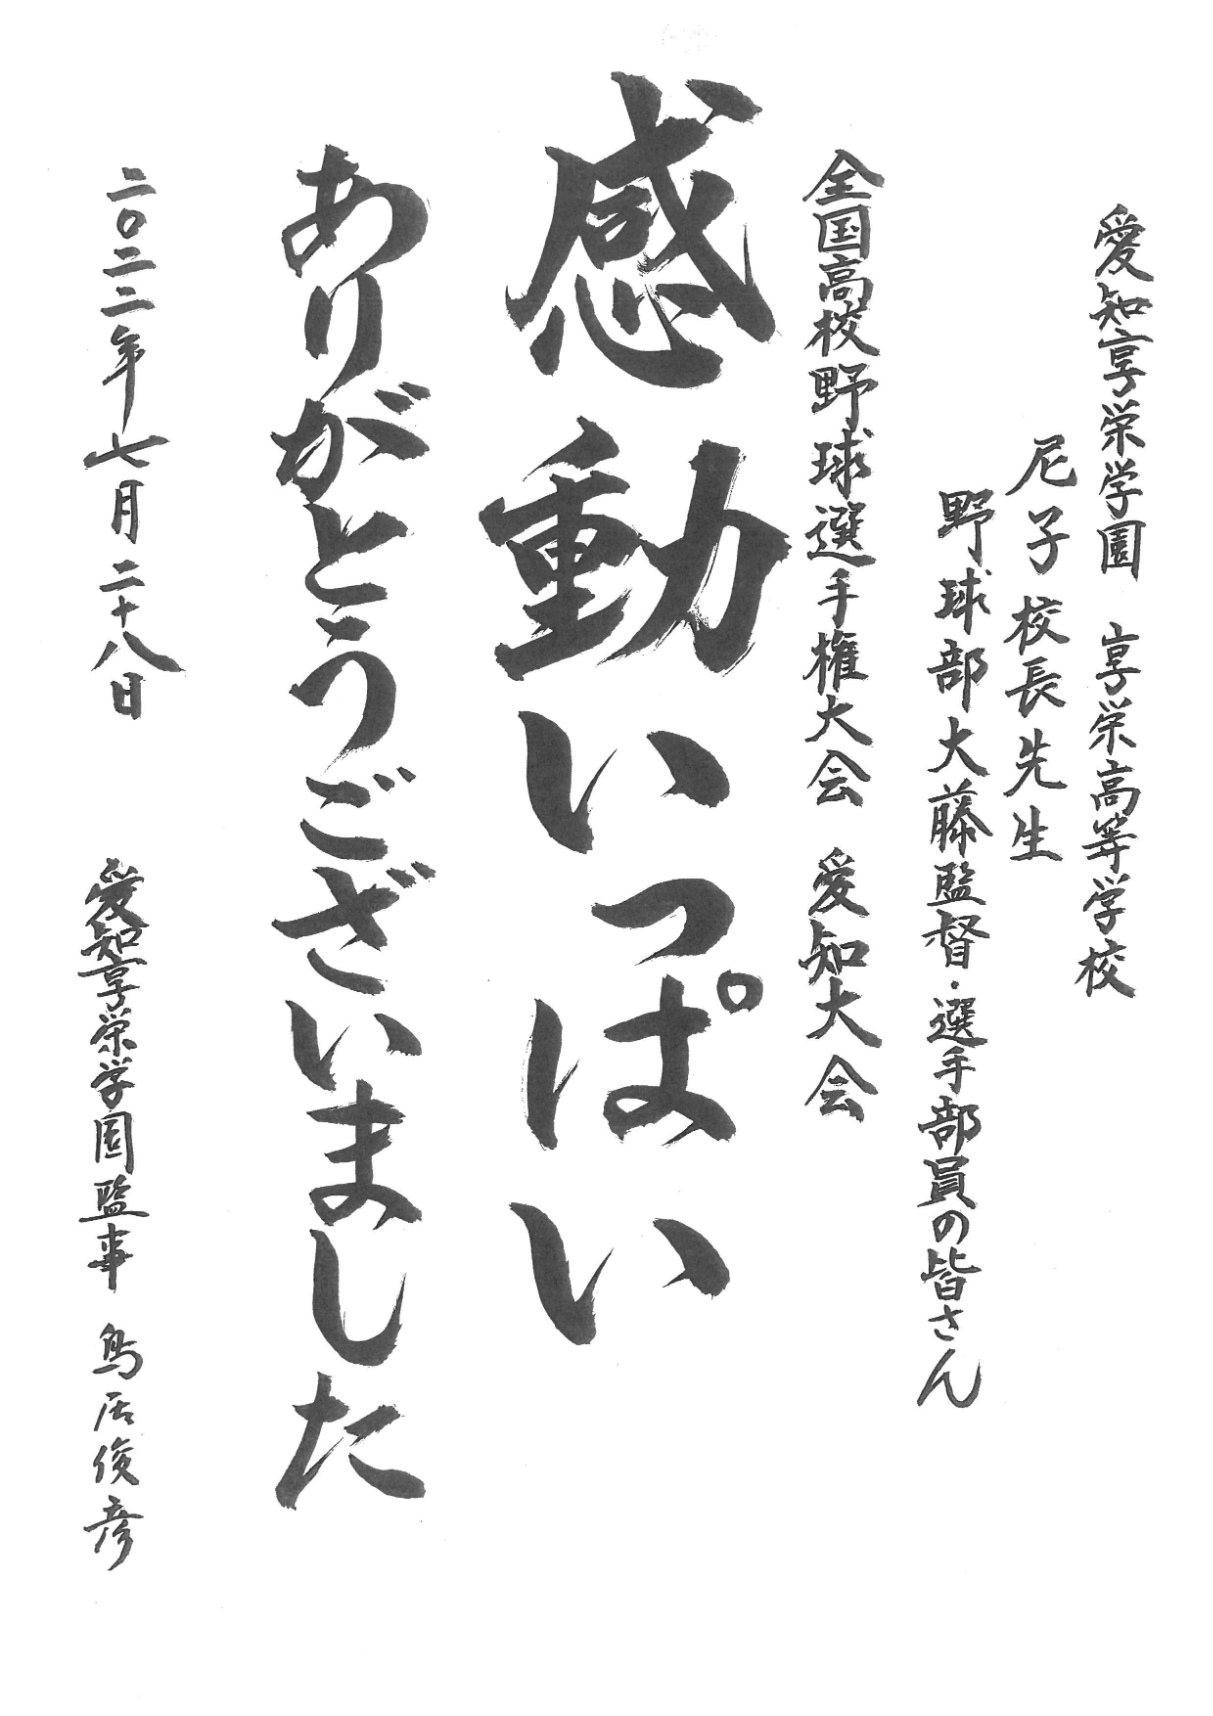 愛知享栄学園　享栄高等学校
尼子校長先生
野球部大藤監督・選手部員の皆さん
全国高校野球選手権大会　愛知大会
感動いっぱい
ありがとうございました
二〇二二年七月二十八日　愛知享栄学園監事　鳥居俊彦